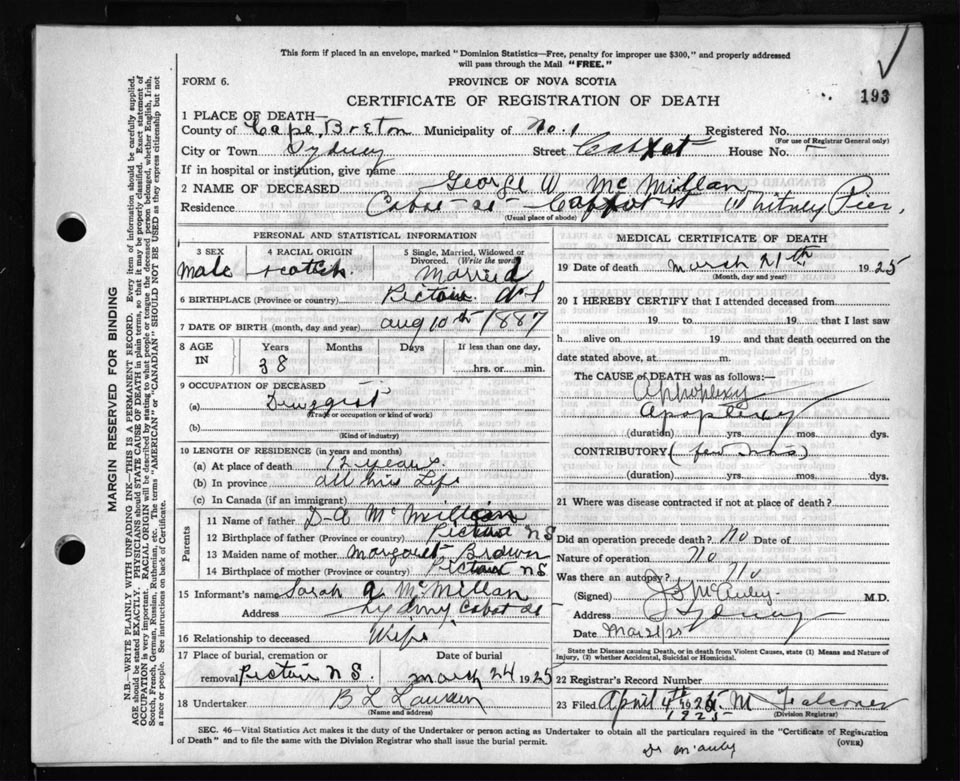 This form if placed in an envelope, marked "Dominion Statistics—Free, penalty for improper use $300," and properly addressed
will pass through the Mail "FREE."
FORM 6. PROVINCE OF NOVA SCOTIA
CERTIFICATE OF REGISTRATION OF DEATH 193
1 PLACE OF DEATH—
County of Cape Breton Municipality of No. 1 Registered No.
(For use of Registrar General only)
City or Town Sydney Street House No.
If in hospital or institution, give name
2 NAME OF DECEASED George W McMillan
Residence Cabot St Whitney Pier,
(Usual place of abode)
PERSONAL AND STATISTICAL INFORMATION
3 SEX 4 RACIAL ORIGIN 5 Single, Married, Widowed or
Divorced. (Write the word)
Male Scotch Married
6 BIRTHPLACE (Province or country) Pictou N S
7 DATE OF BIRTH (month, day and year) Aug 10th 1887
8 AGE IN Years Months Days If less than one day,
38 hrs. or min.
9 OCCUPATION OF DECEASED
(a) Druggist
(Trade or occupation or kind of work)
(b)
(Kind of industry)
10 LENGTH OF RESIDENCE (in years and months)
(a) At place of death 12 years
(b) In province all his Life
(c) In Canada (if an immigrant)
Parents
11 Name of father D-A McMillan
12 Birthplace of father (Province or country) Pictou NS
13 Maiden name of mother Margaret Brown
14 Birthplace of mother (Province or country) Pictou NS
15 Informant's name Sarah A McMillan
Address Sydney Cabot St
16 Relationship to deceased Wife
17 Place of burial, cremation or Date of burial
removal Pictou N S. March 24 1925
18 Undertaker B L
(Name and address)
MEDICAL CERTIFICATE OF DEATH
19 Date of death March 21th 1925
(Month, day and year)
20 I HEREBY CERTIFY that I attended deceased from
19 to 19 that I last saw
h alive on 19 and that death occurred on the
date stated above, at m.
The CAUSE OF DEATH was as follows:—
Apoplexy
(duration) yrs. mos. dys.
CONTRIBUTORY (few hrs)
(duration) yrs. mos. dys.
21 Where was disease contracted if not at place of death?
Did an operation precede death? No Date of
Nature of operation No
Was there an autopsy? No
(Signed) J S McAuley M.D.
Address Sydney
Date Mar 21/25
State the Disease causing Death, or in death from Violent Causes, state (1) Means and Nature of
Injury, (2) whether Accidental, Suicidal or Homicidal.
22 Registrar's Record Number
23 Filed April 4th 1925. M Falconer
1925 (Division Registrar)
SEC. 46—Vital Statistics Act makes it the duty of the Undertaker or person acting as Undertaker to obtain all the particulars required in the "Certificate of Registration
of Death" and to file the same with the Division Registrar who shall issue the burial permit. (OVER)
Dr McAuly
MARGIN RESERVED FOR BINDING
N.B.—WRITE PLAINLY WITH UNFADING INK—THIS IS A PERMANENT RECORD. Every item of information should be carefully supplied.
AGE should be stated EXACTLY. PHYSICIANS should STATE CAUSE OF DEATH in plain terms, so that it may be properly classified. Exact statement of
OCCUPATION is very important. RACIAL ORIGIN will be described by stating to what people or tongue the deceased person belonged, whether English, Irish,
Scotch, French, German, Russian, Ruthenian, etc. The terms "AMERICAN" or "CANADIAN" SHOULD NOT BE USED as they express citizenship but not
a race or people. See instructions on back of Certificate.